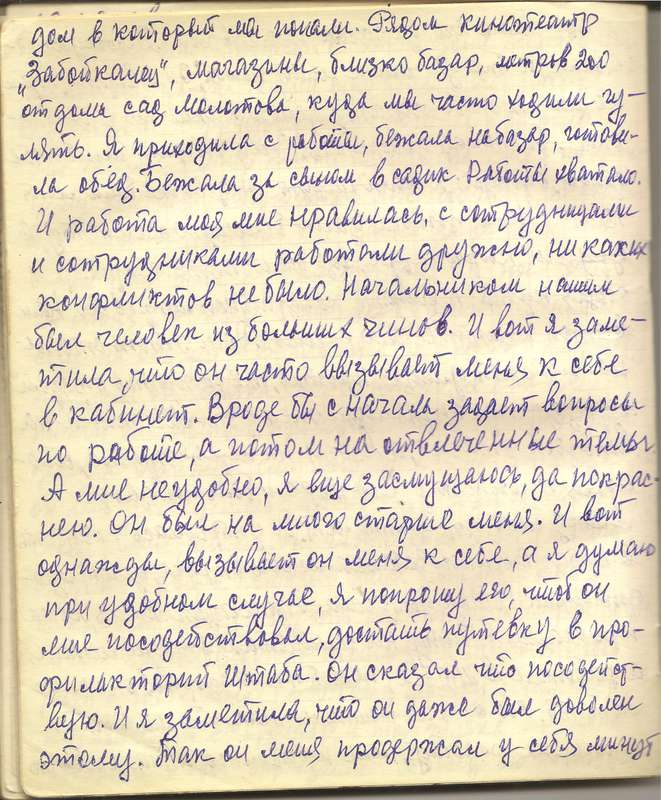 дом в который мы попали. Рядом кинотеатр
"Забойкалец", магазины, близко базар, метров 200
от дома сад Молотова, куда мы часто ходили гу-
лять. Я приходила с работы, бежала на базар, готови-
ла обед. Бежала за сыном в садик. Работы хватало.
И работа моя мне нравилась, с сотрудницами
и сотрудниками работали дружно, ни каких
конфликтов не было. Начальником нашим
был человек из больших чинов. И вот я заме-
тила, что он часто вызывает меня к себе
в кабинет. Вроде бы с начала задает вопросы
по работе, а потом на отвлеченные темы.
А мне неудобно, я еще засмущаюсь, да покрас-
нею. Он был на много старше меня. И вот
однажды, вызывает он меня к себе, а я думаю
при удобном случае, я попрошу его, чтоб он
мне посодействовал, достать путевку в про-
филакторий штаба. Он сказал что посодейст-
вую. И я заметила, что он даже был доволен
этому. Так он меня продержал у себя минут